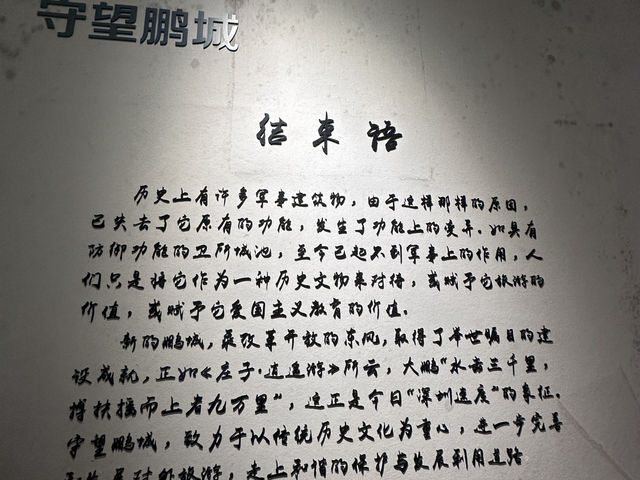 守望鹏城
结束语
历史上有许多军事建筑物，由于这样那样的原因，
已失去了它原有的功能，发生了功能上的变异。如具有
防御功能的卫所城池，至今已起不到军事上的作用，人
们只是将它作为一种历史文物来对待，或赋予它旅游的
价值，或赋予它爱国主义教育的价值。
新的鹏城，乘改革开放的东风，取得了举世瞩目的建
设成就，正如《庄子·逍遥游》所云，大鹏“水击三千里，
搏扶摇而上者九万里”，这正是今日“深圳速度”的象征。
守望鹏城，致力于以传统历史文化为重心，进一步完善
展对外旅游，走上和谐的保护与发展利用道路